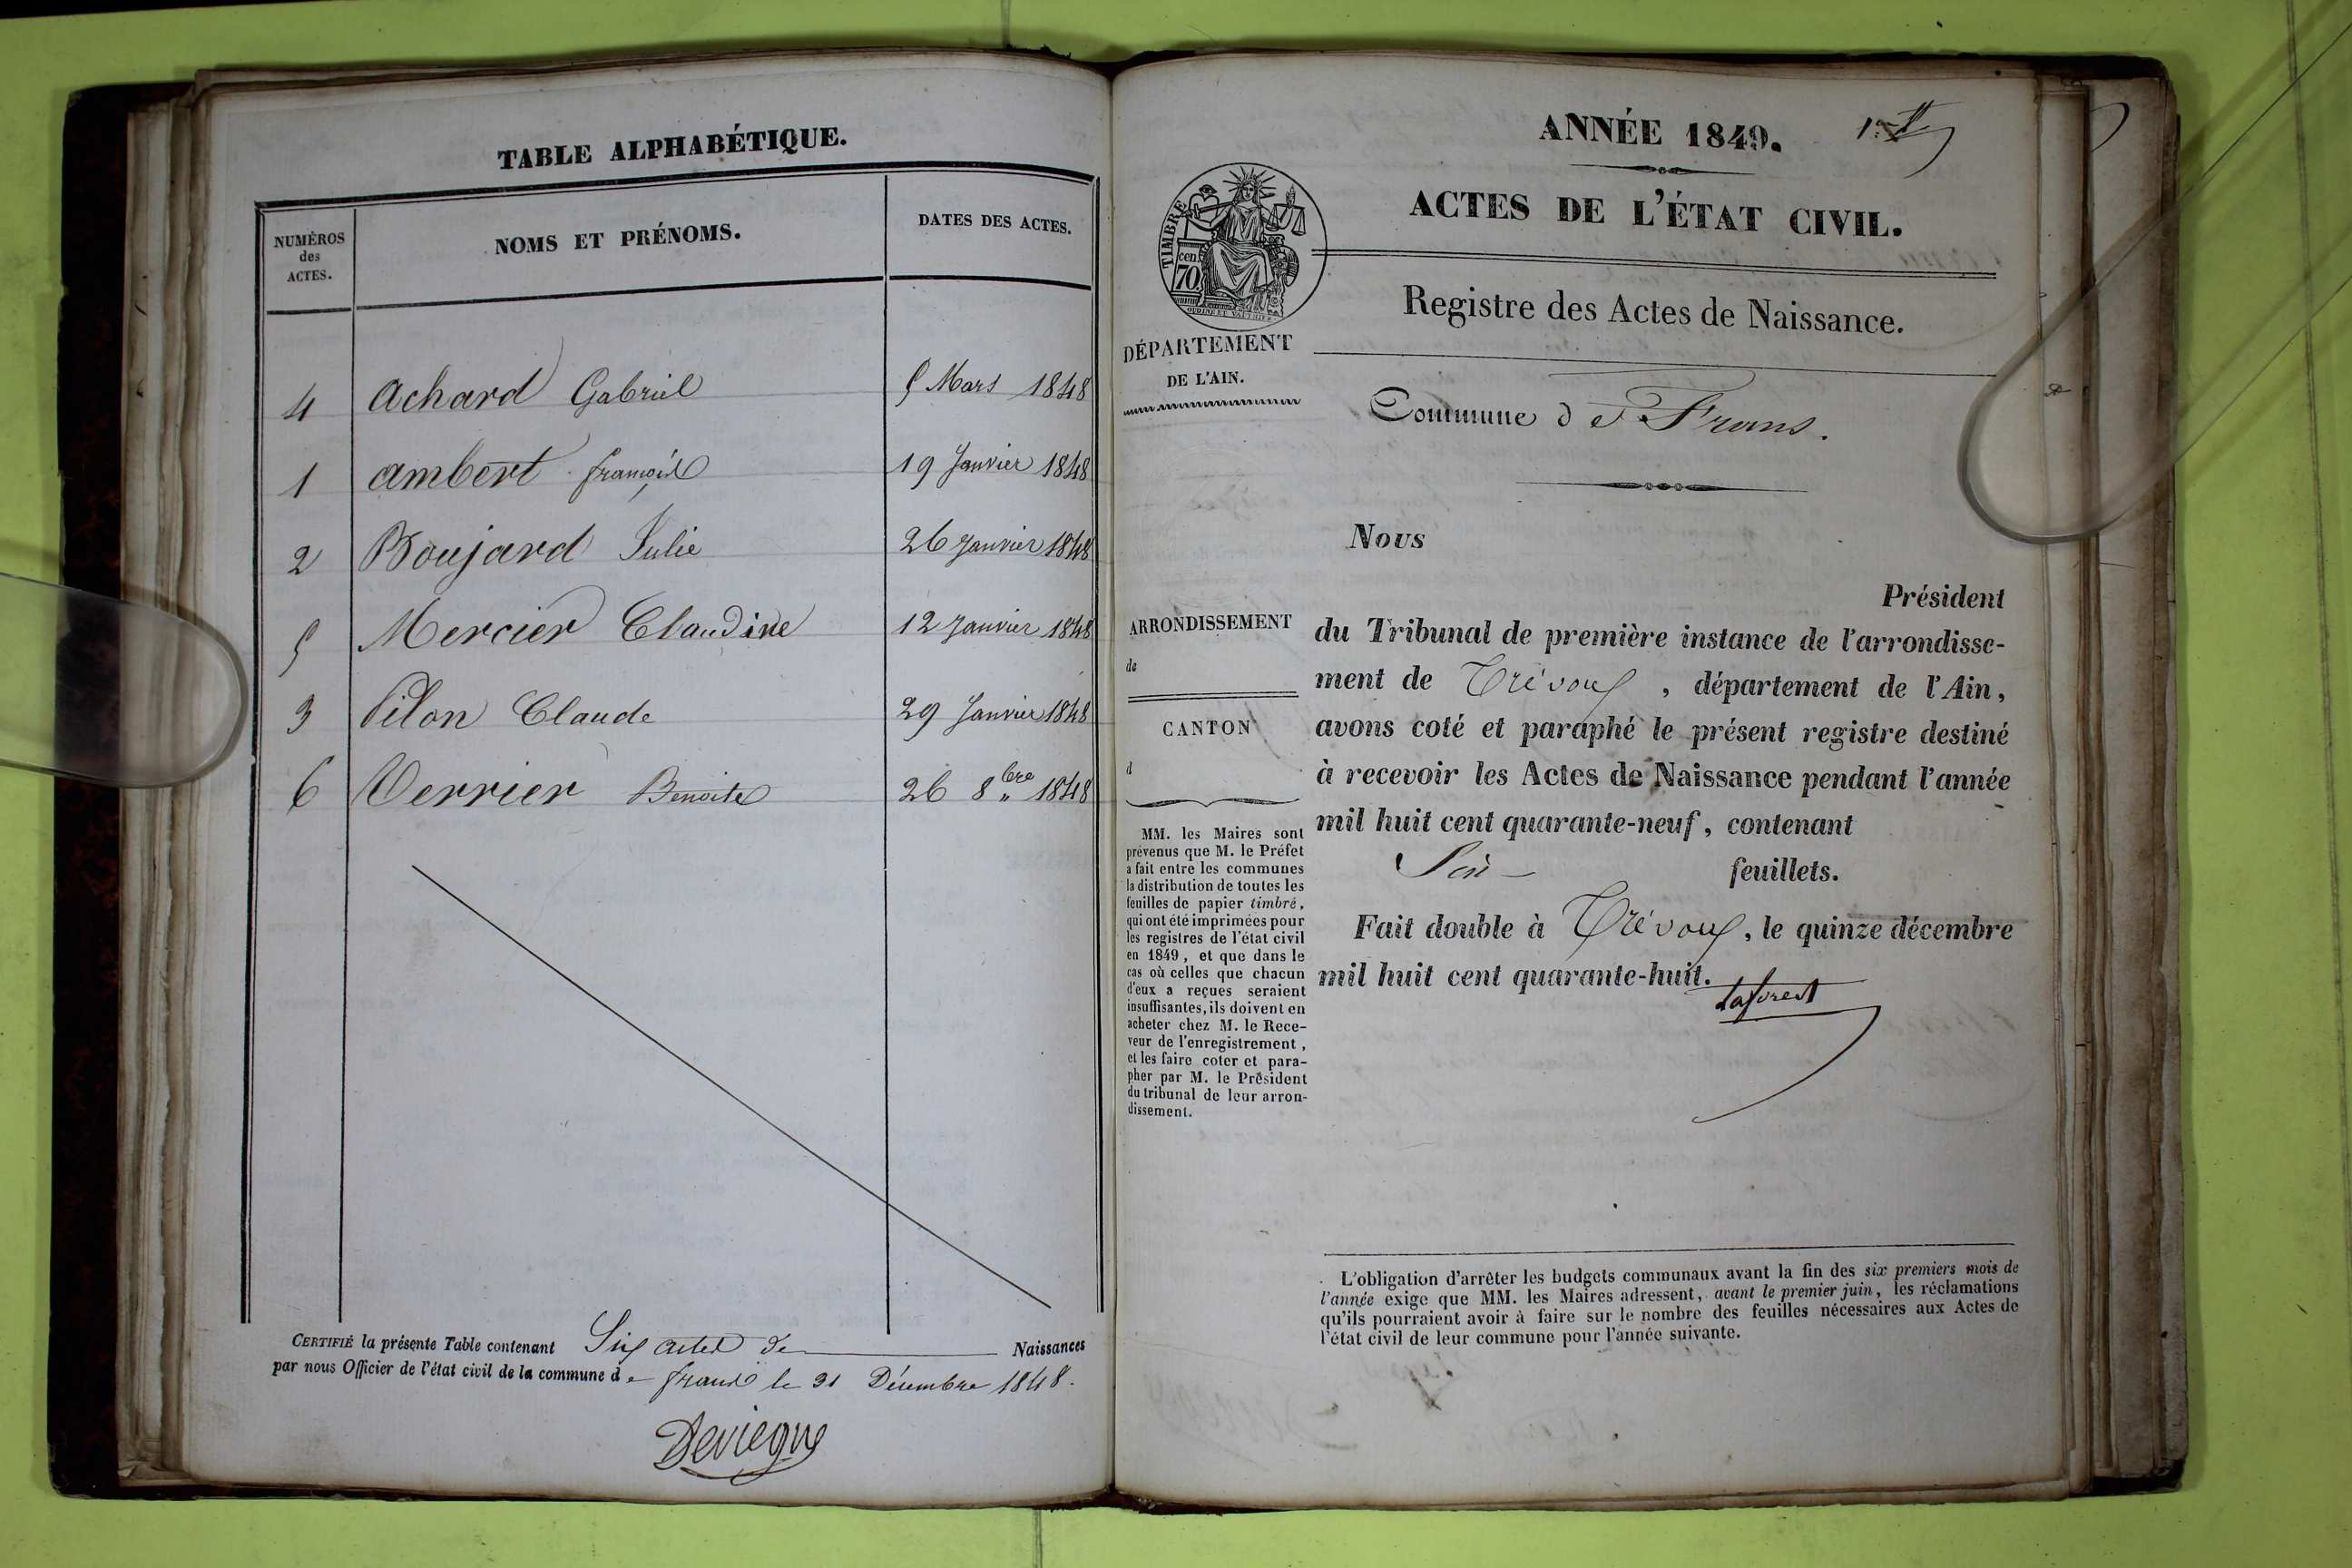 TABLE ALPHABÉTIQUE.
NUMÉROS des ACTES. NOMS ET PRÉNOMS. DATES DES ACTES.
4 Achard Gabriel 5 Mars 1848
1 ambert françois 19 Janvier 1848
2 Boujard Julie 26 Janvier 1848
5 Mercier Claudine 12 Janvier 1848
3 Pilon Claude 29 Janvier 1848
6 Verrier Benoite 26 8bre 1848
CERTIFIÉ la présente Table contenant Six actes de Naissances
par nous Officier de l'état civil de la commune de frans le 31 Décembre 1848.
Deviegue
ANNÉE 1849.
ACTES DE L'ÉTAT CIVIL.
TIMBRE
70 cen
Registre des Actes de Naissance.
DÉPARTEMENT
DE L'AIN.
Commune de Frans.
Nous
Président
ARRONDISSEMENT
de
CANTON
d
du Tribunal de première instance de l'arrondisse-
ment de Trévoux, département de l'Ain,
avons coté et paraphé le présent registre destiné
à recevoir les Actes de Naissance pendant l'année
mil huit cent quarante-neuf, contenant
Six feuillets.
Fait double à Trévoux, le quinze décembre
mil huit cent quarante-huit.
Laforest
MM. les Maires sont
prévenus que M. le Préfet
a fait entre les communes
la distribution de toutes les
feuilles de papier timbré,
qui ont été imprimées pour
les registres de l'état civil
en 1849, et que dans le
cas où celles que chacun
d'eux a reçues seraient
insuffisantes, ils doivent en
acheter chez M. le Rece-
veur de l'enregistrement,
et les faire coter et para-
pher par M. le Président
du tribunal de leur arron-
dissement.
L'obligation d'arrêter les budgets communaux avant la fin des six premiers mois de
l'année exige que MM. les Maires adressent, avant le premier juin, les réclamations
qu'ils pourraient avoir à faire sur le nombre des feuilles nécessaires aux Actes de
l'état civil de leur commune pour l'année suivante.